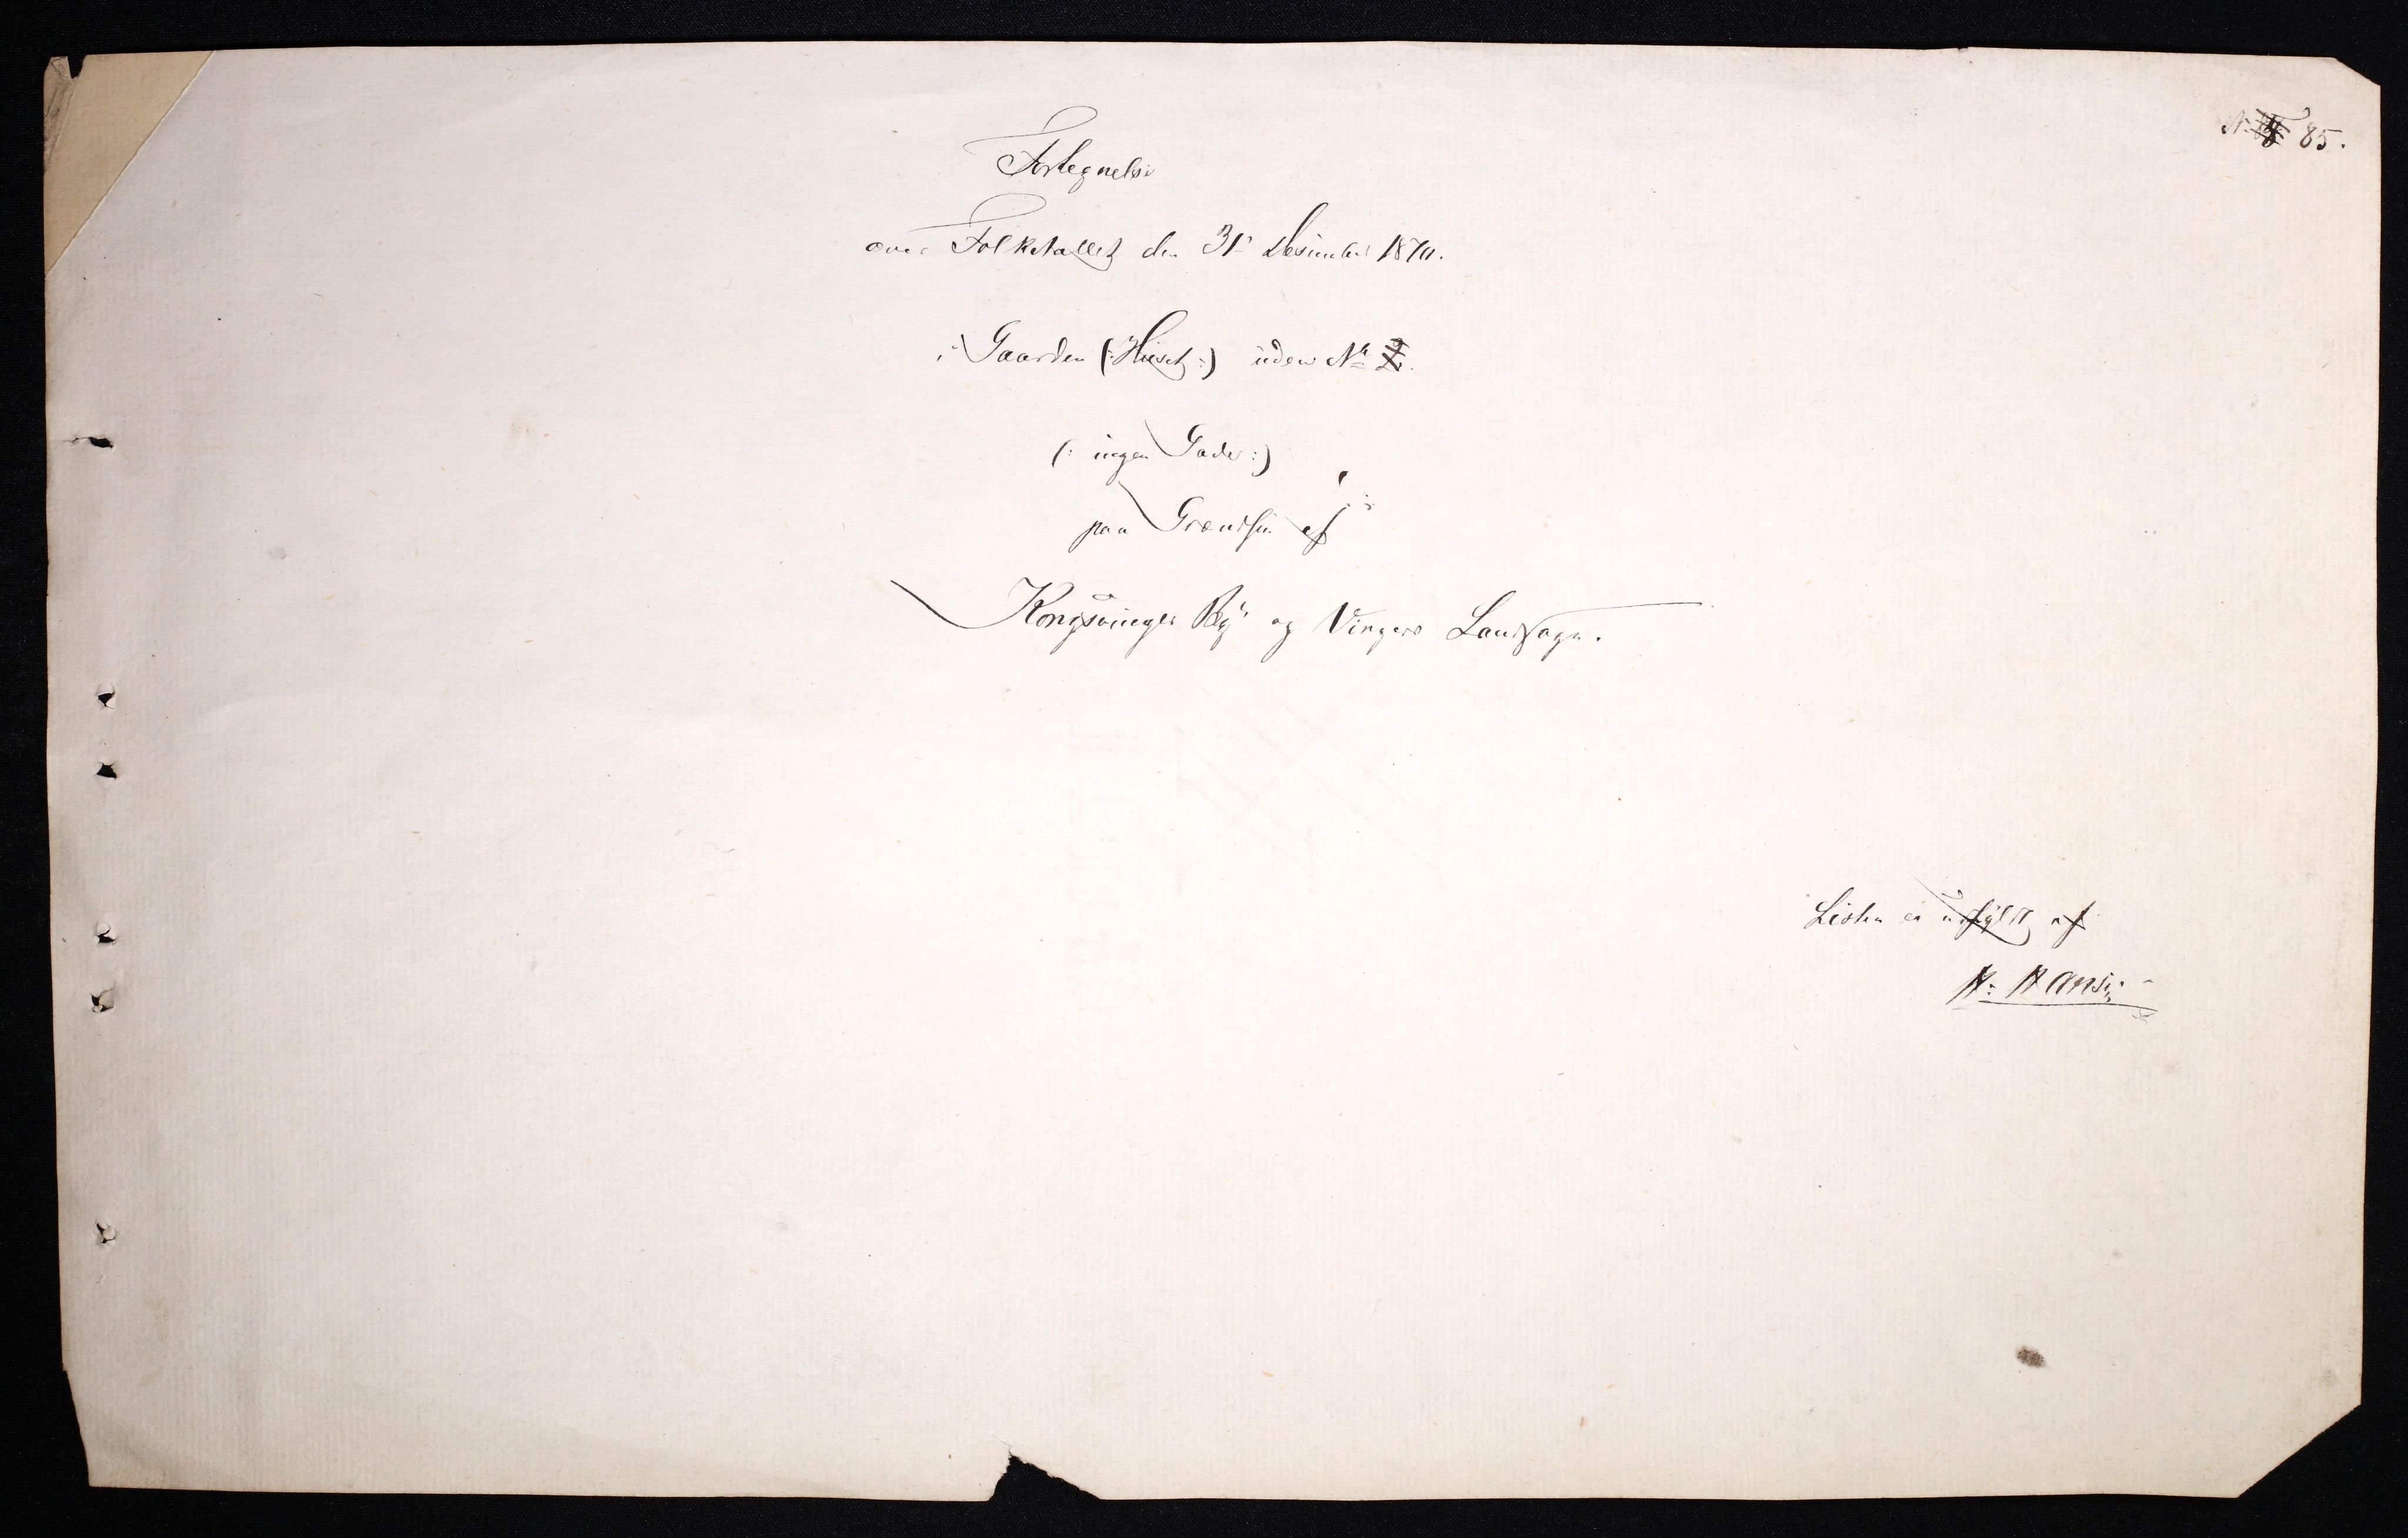 N. 85.
Fortegnelse
over Folketallet den 31te December 1870.
i Gaarden (: Huset :) uden No
(: ingen Gade :)
paa Grændsen af
Kongsvinger By og Vingers Landsogn.
Listen er udfyldt af
H. Hansen